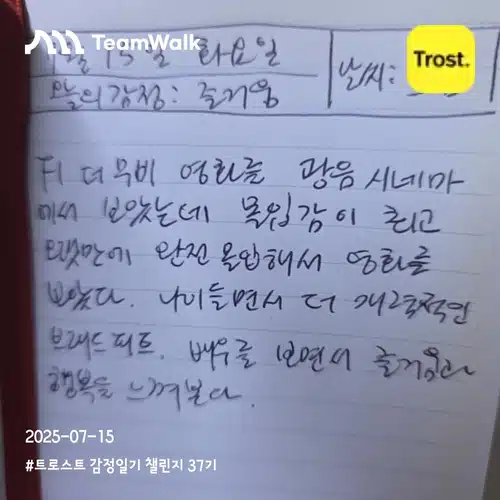 TeamWalk
Trost.
7월 15일 화요일
오늘의 감정: 즐거움
날씨:
F1 더 무비 영화를 광음시네마
에서 보았는데 몰입감이 최고
오랫만에 완전 몰입해서 영화를
보았다. 나이들면서 더 매력적인
브래드피트. 배우를 보면서 즐거움과
행복을 느껴본다.
2025-07-15
#트로스트 감정일기 챌린지 37기